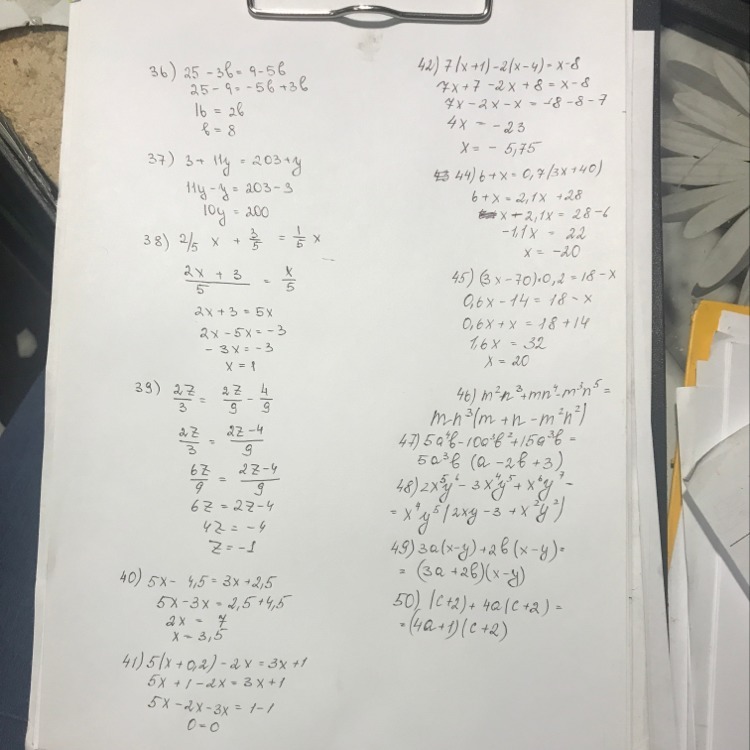 36) 25 - 3b = 9 - 5b
25 - 9 = -5b + 3b
16 = 2b
b = 8
37) 3 + 11y = 203 + y
11y - y = 203 - 3
10y = 200
38) 2/5 x + 3/5 = 1/5 x
2x + 3 / 5 = x / 5
2x + 3 = 5x
2x - 5x = -3
- 3x = -3
x = 1
39) 2z/3 = 2z/9 - 4/9
2z/3 = 2z-4/9
6z/9 = 2z-4/9
6z = 2z-4
4z = -4
z = -1
40) 5x - 4,5 = 3x + 2,5
5x - 3x = 2,5 + 4,5
2x = 7
x = 3,5
41) 5(x + 0,2) - 2x = 3x + 1
5x + 1 - 2x = 3x + 1
5x - 2x - 3x = 1 - 1
0 = 0
42) 7(x+1) - 2(x-4) = x-8
7x + 7 - 2x + 8 = x - 8
7x - 2x - x = -8 - 8 - 7
4x = -23
x = - 5,75
44) 6 + x = 0,7(3x+40)
6 + x = 2,1x + 28
x - 2,1x = 28 - 6
-1,1x = 22
x = -20
45) (3x - 70)·0,2 = 18 - x
0,6x - 14 = 18 - x
0,6x + x = 18 + 14
1,6x = 32
x = 20
46) m²n³ + mn⁴ - m³n⁵ =
mn³(m + n - m²n²)
47) 5a⁴b - 10a³b² + 15a³b =
5a³b (a - 2b + 3)
48) 2x⁵y⁶ - 3x⁴y⁵ + x⁶y⁷ =
= x⁴y⁵(2xy - 3 + x²y²)
49) 3a(x-y) + 2b(x-y) =
= (3a + 2b)(x-y)
50) (c+2) + 4a(c+2) =
= (4a+1)(c+2)